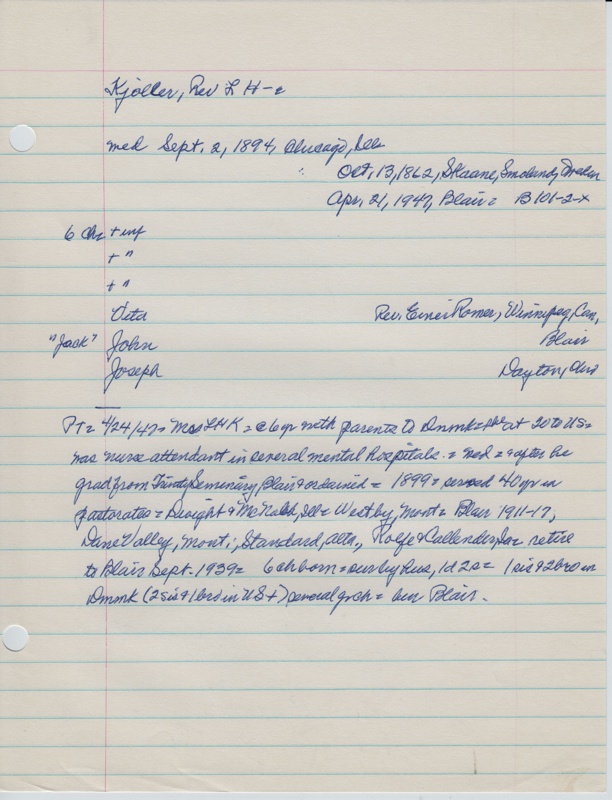 Kjoller, Rev L H-c
med Sept. 2, 1894, Chicago, Ills
Oct, 13, 1862, Skaane, Smolund, Sweden
Apr, 21, 1947, Blair = B101-2-x
6 Ch = + inf
+ "
+ "
Veta Rev. Einer Romer, Winnipeg, Can,
"Jack" John Blair
Joseph Dayton, Ohio
PT = 4/24/47 = Mrs LHK = c 6 yr with parents to Dnmk = at 20 to US =
was nurse attendant in several mental hospitals. = med = & after he
grad from Trinity Seminary, Blair & ordained = 1899 = served 40 yr in
pastorates = Dwight & McNabb, Ill = Westby, Mont = Blair 1911-17,
Dane Valley, Mont; Standard, Alta, Rolfe & Callender, Ia = retire
to Blair Sept. 1939 = 6 ch born = sur by hus, 1d 2s = 1 sis & 2 bro in
Dnmk (2 sis & 1 bro in US +) several grch = bur Blair.